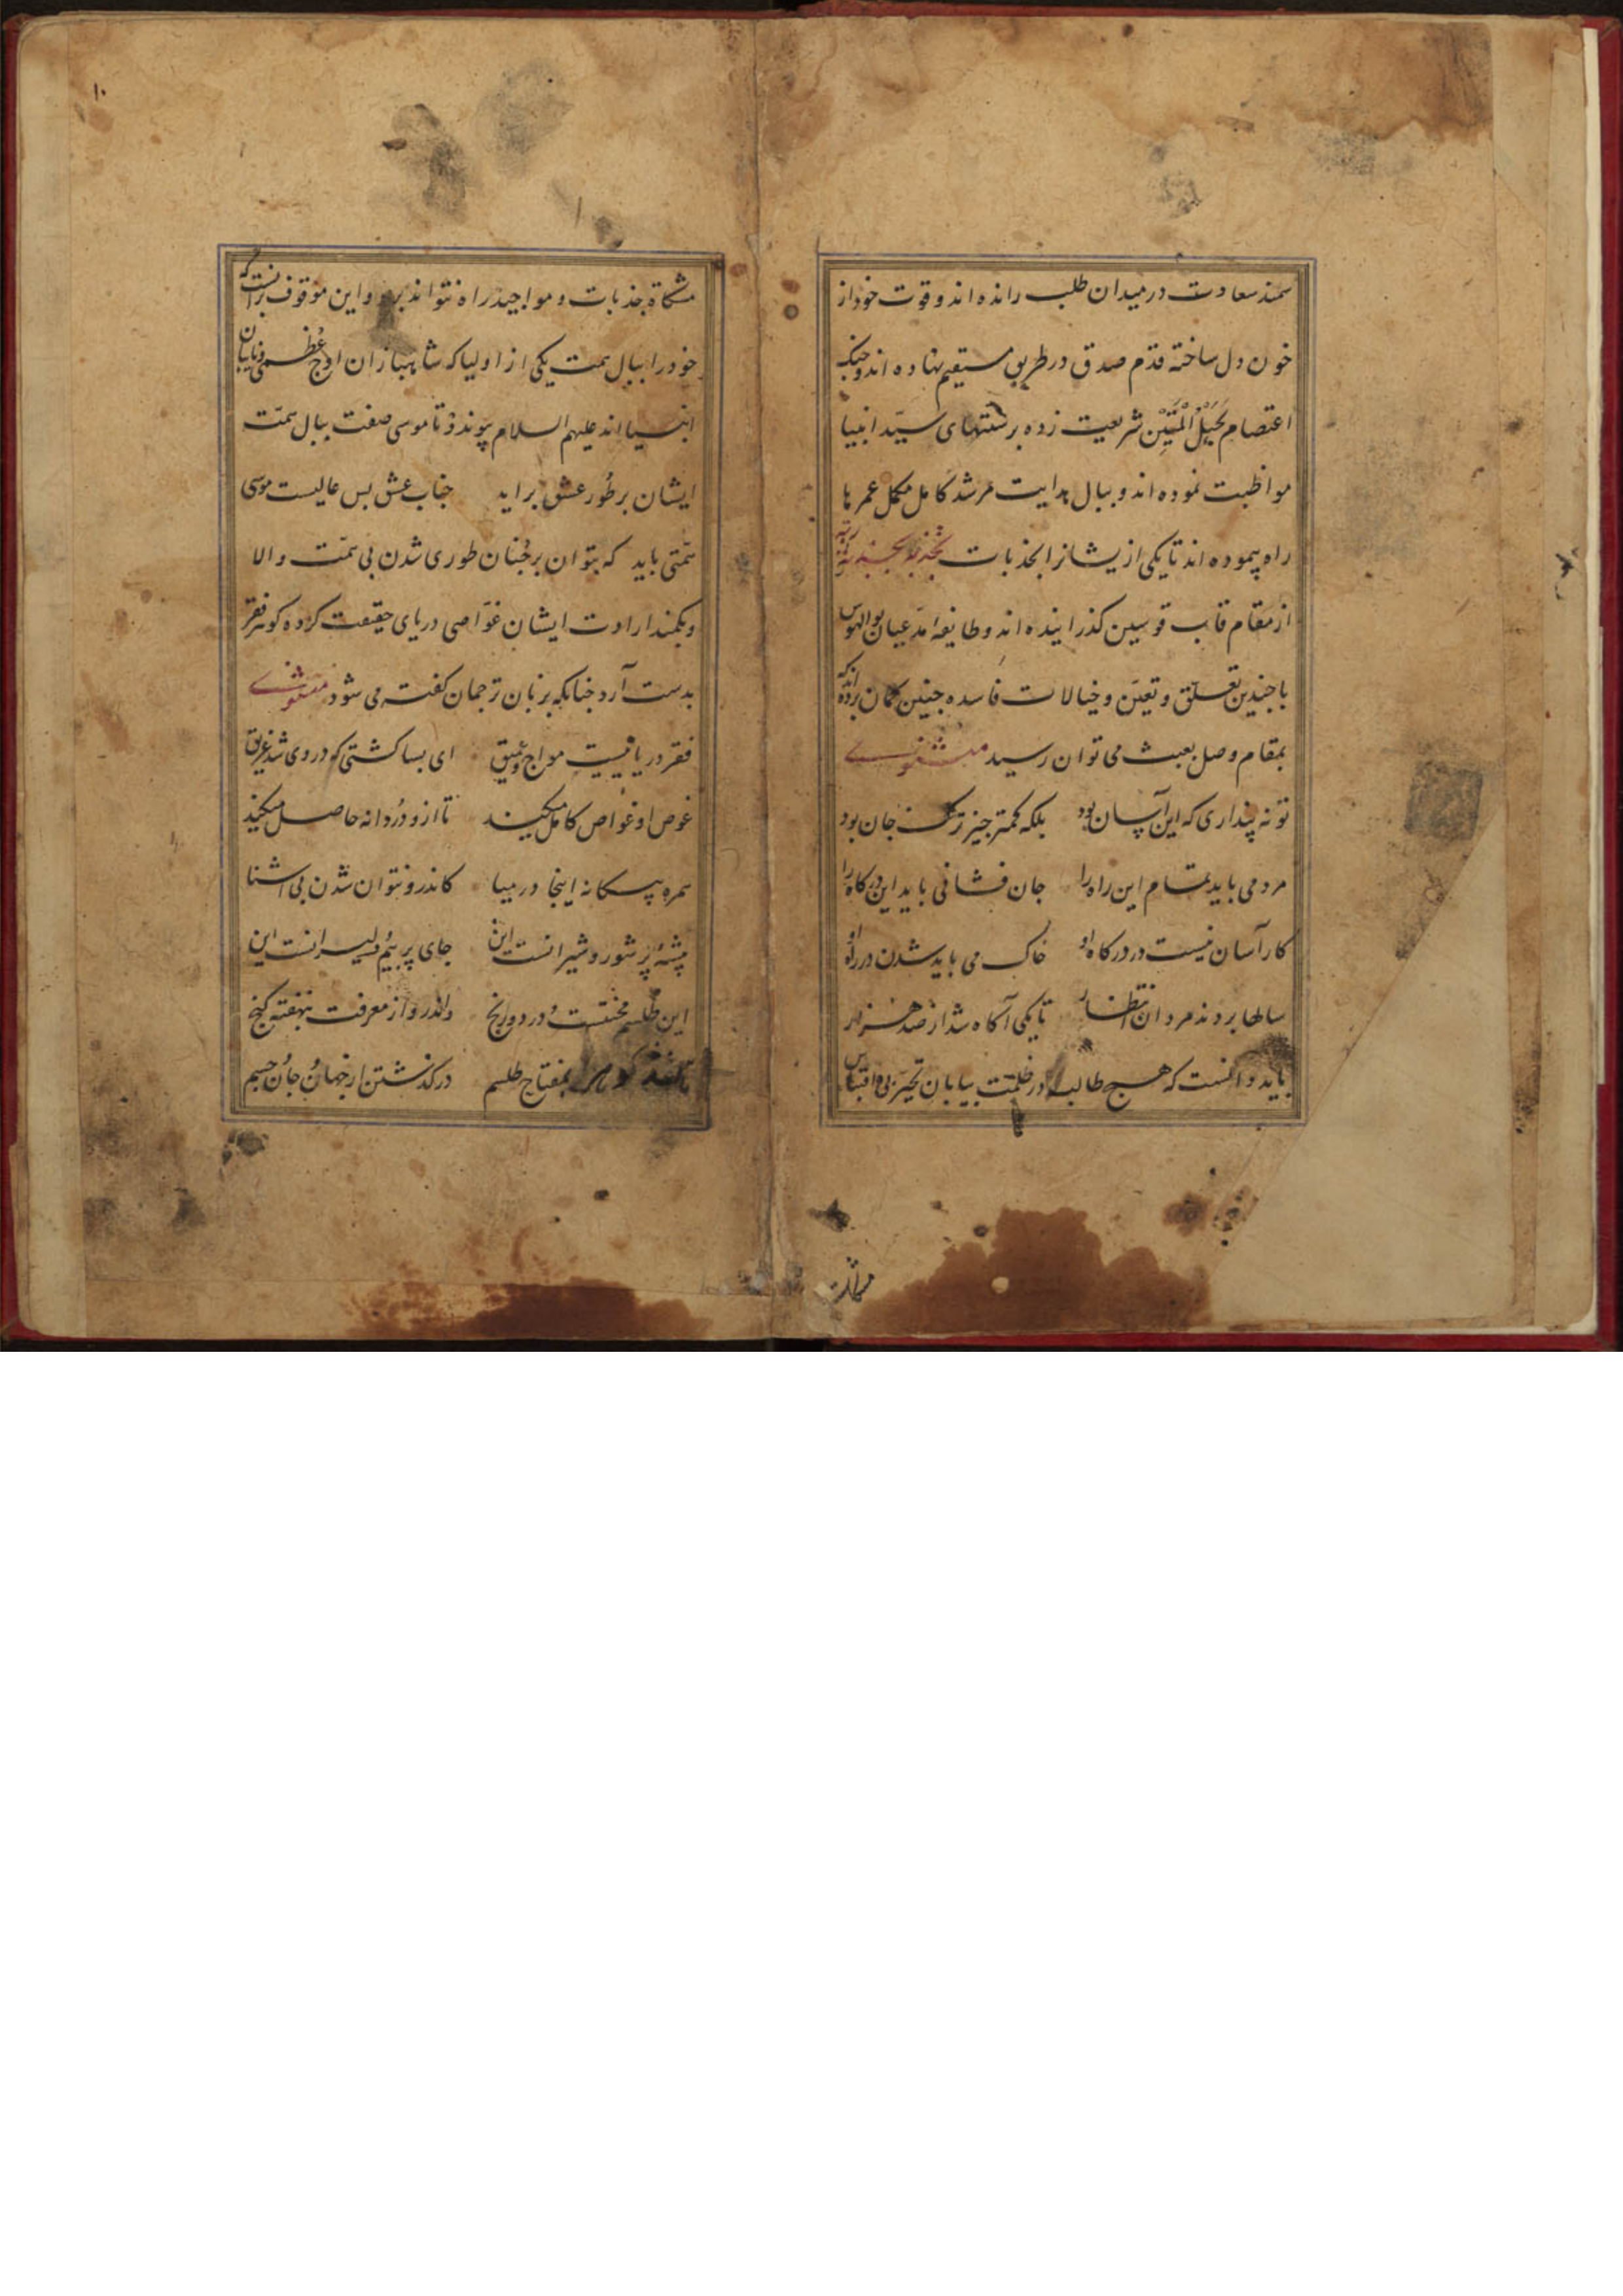 سمند سعادت در میدان طلب رانده اند و قوت خود از
خون دل ساخته قدم صدق در طریق مستقیم نهاده اند و چنک
اعتصام بحبل المتین شریعت زده بر سنتهای سید انبیا
مواظبت نموده اند و ببال هدایت مرشد کامل مکمل عمر ها
راه پیموده اند تا یکی از یشانرا بجذبات
از مقام قاب قوسین کذرانیده اند و طایفه مدعیان بوالهوس
با چندین تعلق و تعین و خیالات فاسده چنین کمان برده اند که
بمقام وصل بعبث می توان رسید مثنوی
تو نه پنداری که این آسان بود بلکه کمتر چیز ترک جان بود
مرد می باید تمام این راه را جان فشانی باید این درکاه را
کار آسان نیست در درکاه او خاک می باید شدن در راه او
سالها بردند مردان انتظار تا یکی آکاه شد از صد هزار
باید دانست که هیچ طالب در ظلمت بیابان تحیر بی اقتباس
مشکاة
۱۰
مشکاة جذبات و مواجید راه نتواند برد و این موقوف بر انست که
خود را ببال همت یکی از اولیا که شاهبازان اوج عظمی و نایبان
انبیا اند علیهم السلام پیوندد تا موسی صفت ببال همت
ایشان بر طور عشق براید جناب عشق بس عالیست موسی
همتی باید که بتوان بر چنان طوری شدن بی همت والا
و بکمند ارادت ایشان غواصی دریای حقیقت کرده کوهر فقر
بدست آرد چنانکه بر زبان ترجمان کفته می شود مثنوی
فقر دریا ئیست مواج و عمیق ای بسا کشتی که در وی شد غریق
غوص او غواص کامل میکند تا ازو دردانه حاصل میکند
سمره بیکانه اینجا در میا کاندرو نتوان شدن بی آشنا
بیشه پر شور و شیرانست این جای پر بیم دلیرانست این
این طلسم محنتست و درد و رنج واندرو از معرفت بنهفته کنج
بمفتاح طلسم در کذشتن از جهان و جان و جسم